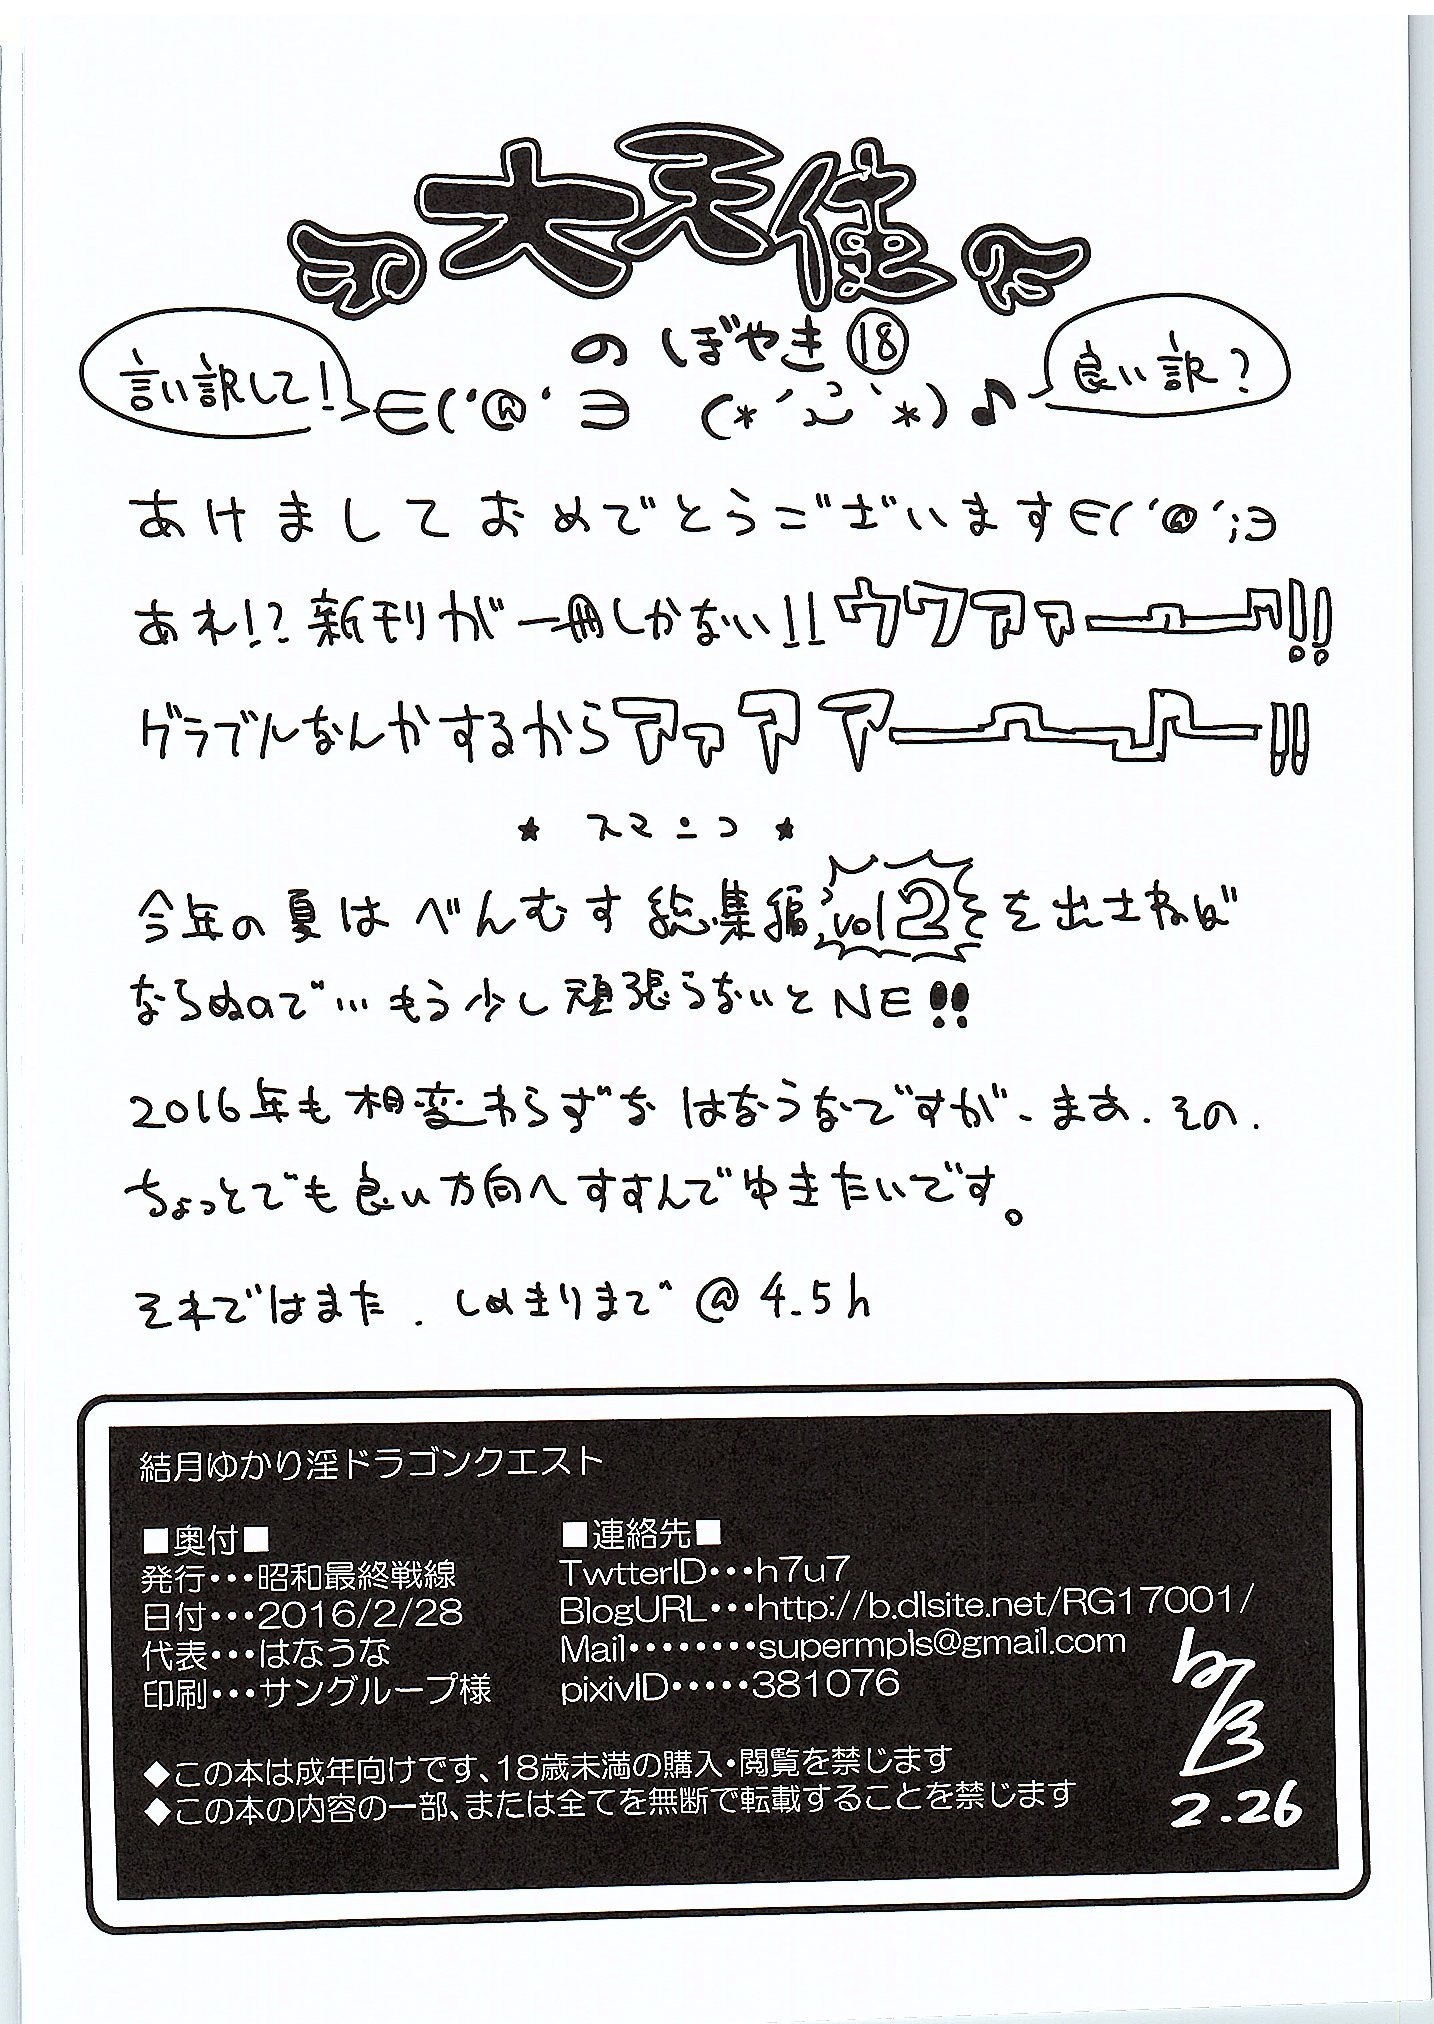 大天使
のぼやき⑱
言い訳して!
∈('@'∋ (*´ω`*)♪
良い訳?
あけましておめでとうございます∈('@';∋
あれ!?新刊が一冊しかない!!ウワァァーーー!!
グラブルなんかするからアァアアーーー!!
★ スマニコ ★
今年の夏はべんむす総集編vol2を出さねば
ならぬので…もう少し頑張らないとNE!!
2016年も相変わらずな はなうなですが、まぁ、その、
ちょっとでも良い方向へすすんでゆきたいです。
それではまた、しめきりまで@4.5h
結月ゆかり淫ドラゴンクエスト
■奥付■
発行・・・昭和最終戦線
日付・・・2016/2/28
代表・・・はなうな
印刷・・・サングループ様
■連絡先■
TwtterID・・・h7u7
BlogURL・・・http://b.dlsite.net/RG17001/
Mail・・・・・・・・supermpls@gmail.com
pixivID・・・・・381076
◆この本は成年向けです、18歳未満の購入・閲覧を禁じます
◆この本の内容の一部、または全てを無断で転載することを禁じます
2.26